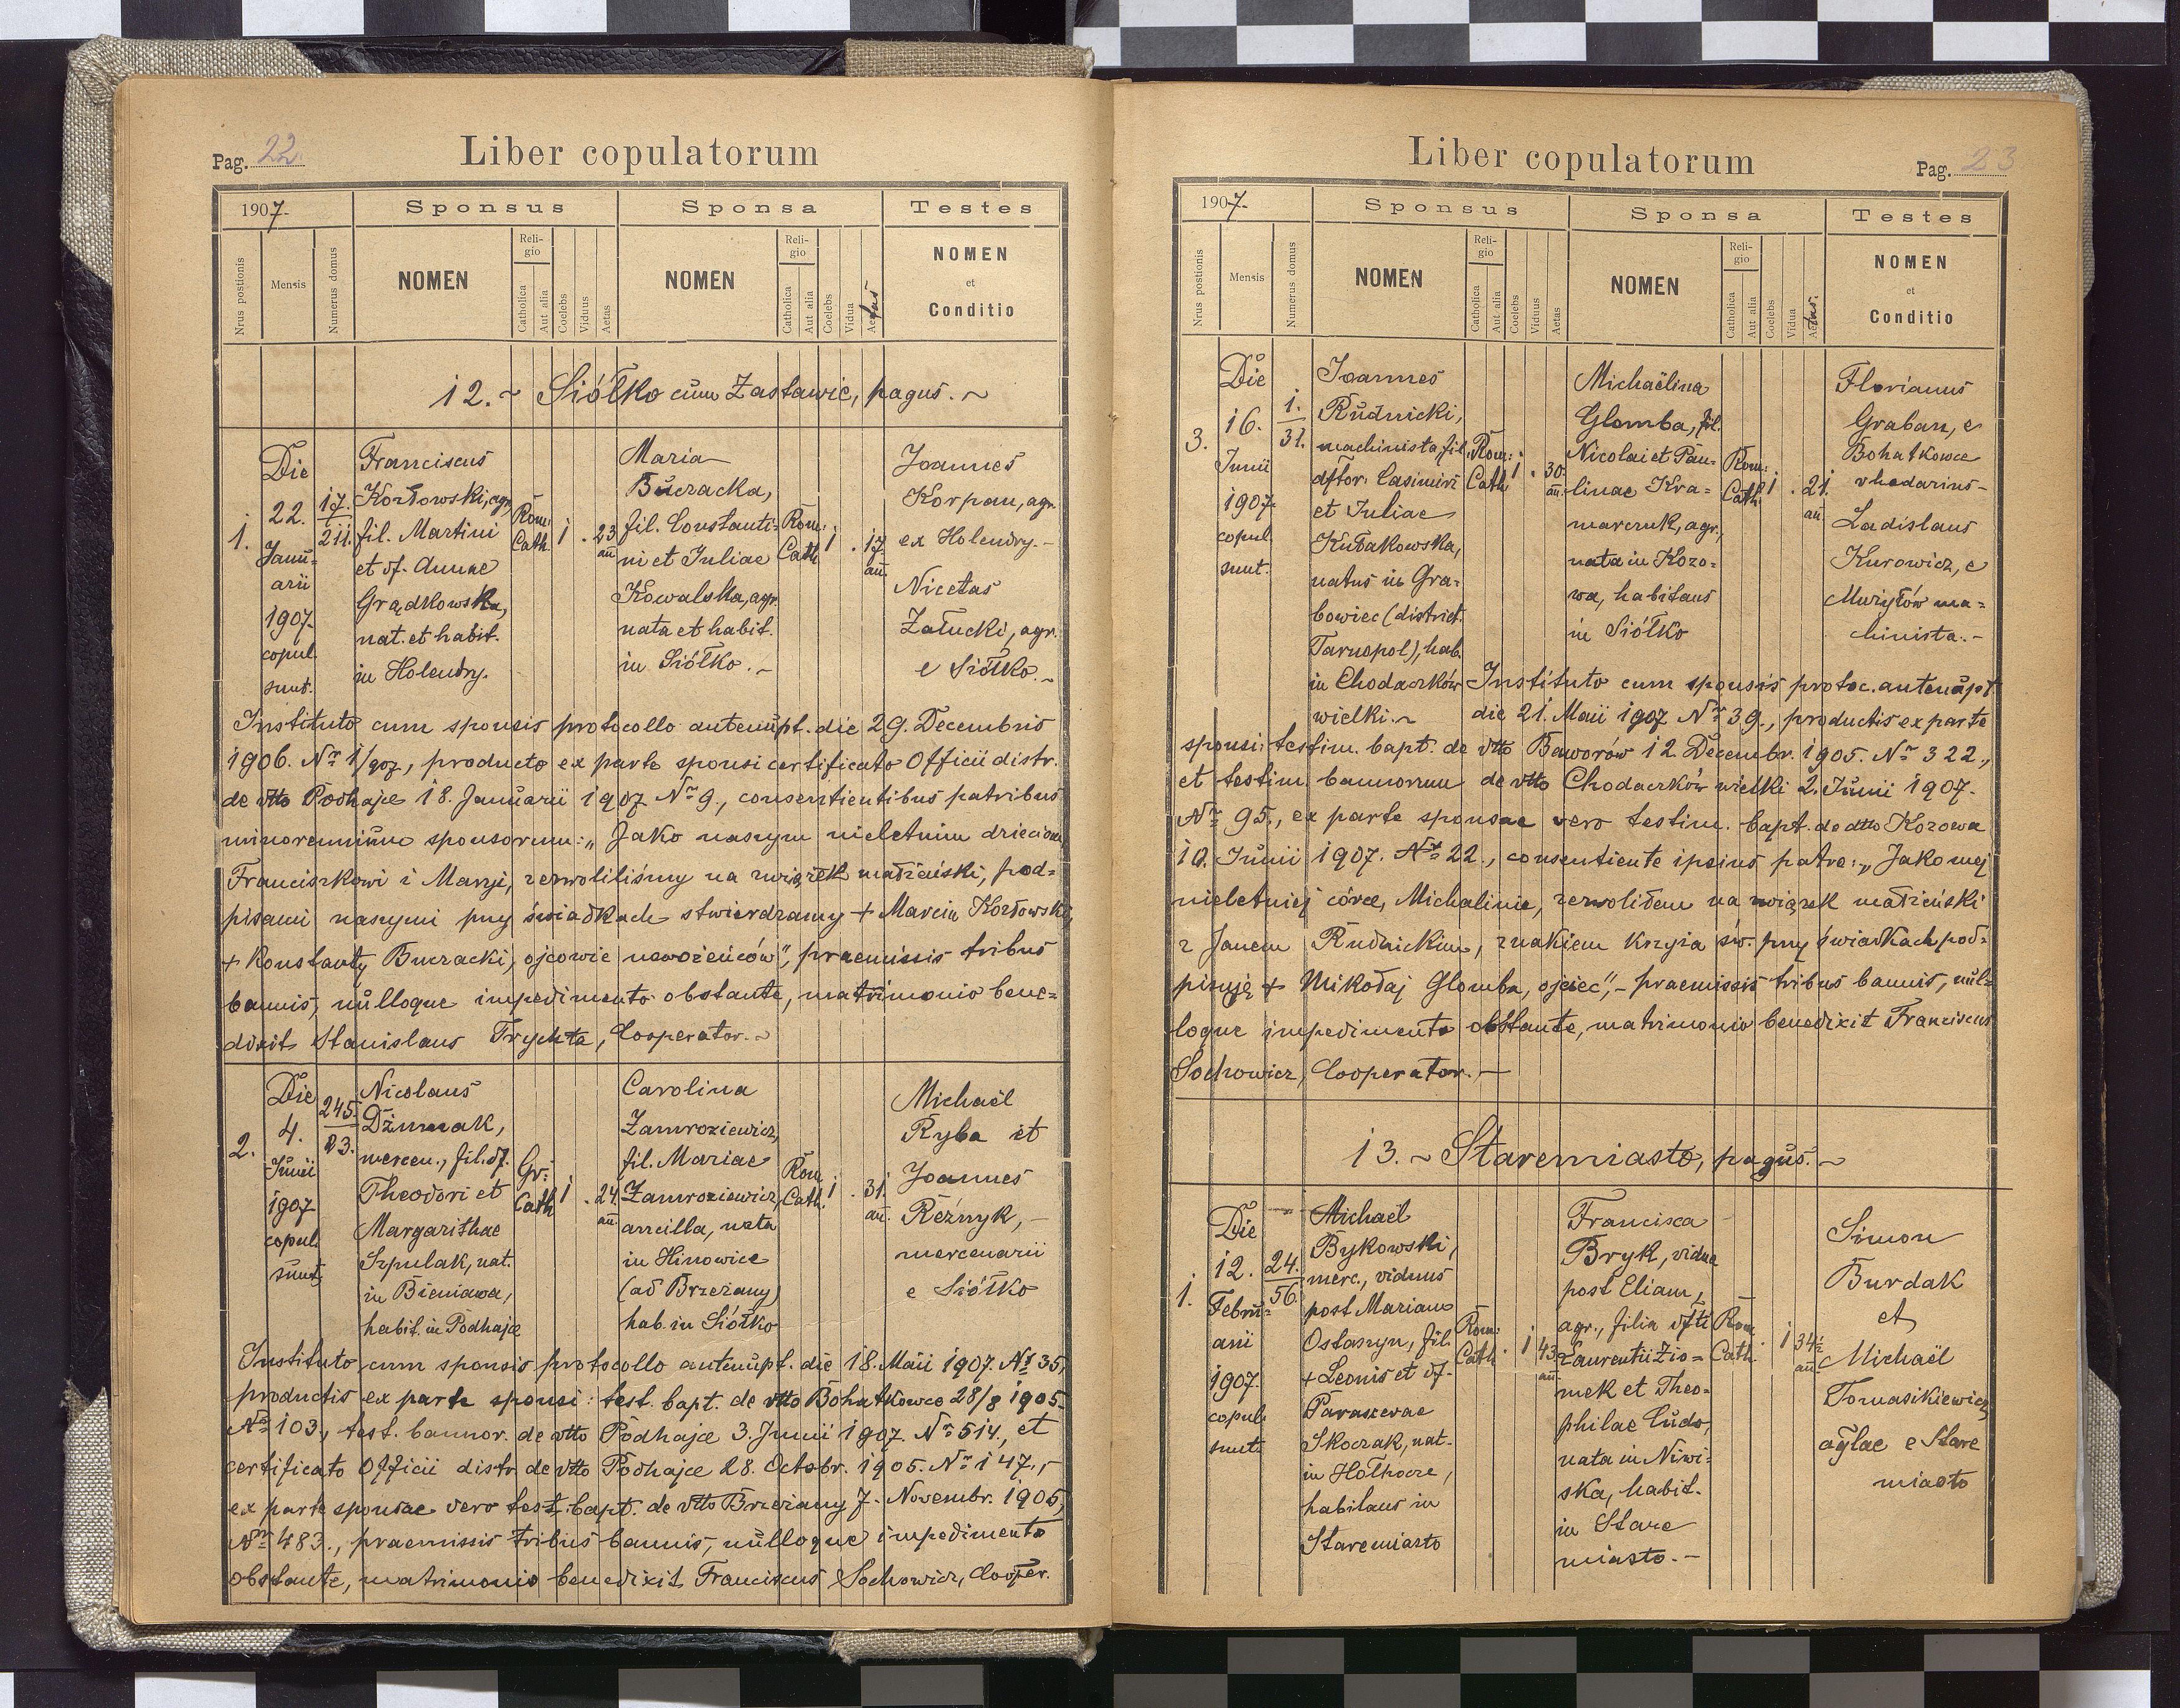 Pag. 22.
Liber copulatorum
1907.
Sponsus
Sponsa
Testes
Nrus postionis
Mensis
Numerus domus
NOMEN
Religio
Catholica
Aut alia
Coelebs
Viduus
Aetas
NOMEN
Religio
Catholica
Aut alia
Coelebs
Vidua
Aetas
NOMEN
et
Conditio
12. ~ Siółko cum Zastawie, pagus. ~
1.
Die
22.
Janu=
arii
1907
copul.
sunt.
17.
211.
Franciscus
Kozłowski, agr.
fil. Martini
et df. Annae
Grądkowska,
nat. et habit.
in Holendry.
Rom:
Cath.
1
23
an
Maria
Buczacka,
fil. Constanti=
ni et Juliae
Kowalska, agr.
nata et habit.
in Siółko. ~
Rom:
Cath.
1
17.
an.
Joannes
Korpan, agr.
ex Holendry. -
Nicetas
Załucki, agr.
e Siółko. ~
Instituto cum sponsis protocollo antenupt. die 29. Decembris
1906. Nr 1/907, producto ex parte sponsi certificato Officii distr.
de dtto Podhajce 18. Januarii 1907 Nr 9., consentientibus patribus
minorennium sponsorum: „Jako naszym nieletnim dzieciom
Franciszkowi i Maryi, zezwoliliśmy na związek małżeński, pod=
pisami naszymi przy świadkach stwierdzamy + Marcin Kozłowski,
+ Konstanty Buczacki, ojcowie nowożeńców", praemissis tribus
bannis, nulloque impedimento obstante, matrimonio bene=
dixit Stanislaus Trychta, Cooperator. ~
2.
Die
4.
Junii
1907
copul.
sunt.
245.
23.
Nicolaus
Dżumak,
mercen., fil. df.
Theodori et
Margarithae
Szpulak, nat.
in Bieniawa,
habit. in Podhajce
Gr:
Cath
1
24.
an
Carolina
Zamroziewicz,
fil. Mariae
Zamroziewicz,
ancilla, nata
in Hinowice
(ad Brzeżany)
hab. in Siółko
Rom
Cath.
1
31.
an.
Michaël
Ryba et
Joannes
Reźnyk, -
mercenarii
e Siółko
Instituto cum sponsis protocollo antenupt. die 18. Maii 1907. Nr 35,
productis ex parte sponsi: test. bapt. de dtto Bohatkowce 28/8 1905.
Nr 103., test. bannor. de dtto Podhajce 3. Junii 1907. Nr 514., et
certificato Officii distr. de dtto Podhajce 28. Octobr. 1905. Nr 147., -
ex parte sponsae vero test. bapt. de dtto Brzeżany 7. Novembr. 1905,
Nr 483., praemissis tribus bannis, nulloque impedimento
obstante, matrimonio benedixit Franciscus Sochowicz, Cooper.
Liber copulatorum
Pag. 23
1907.
Sponsus
Sponsa
Testes
Nrus postionis
Mensis
Numerus domus
NOMEN
Religio
Catholica
Aut alia
Coelebs
Viduus
Aetas
NOMEN
Religio
Catholica
Aut alia
Coelebs
Vidua
Aetas
NOMEN
et
Conditio
3.
Die
16.
Junii
1907
copul.
sunt.
1.
31.
Joannes
Rudnicki,
machinista, fil.
dftor. Casimiri
et Juliae
Kułakowska,
natus in Gra=
bowiec (district.
Tarnopol), hab.
in Chodaczków
wielki. ~
Rom:
Cath
1
30.
an.
Michaëlina
Glomba, fil.
Nicolai et Pau=
linae Kra=
marczuk, agr.,
nata in Kozo=
wa, habitans
in Siółko
Rom:
Cath
1
21.
an
Florianus
Graban, e
Bohatkowce
rhedarius -
Ladislaus
Kurowicz, e
ma=
chinista. -
Instituto cum sponsis protoc. antenupt.
die 21. Maii 1907 Nr 39., productis ex parte
sponsi: testim. bapt. de dtto Baworów 12. Decembr. 1905. Nr 322.,
et testim. bannorum de dtto Chodaczków wielki 2. Junii 1907.
Nr 95., ex parte sponsae vero testim. bapt. de dtto Kozowa
10. Junii 1907. Nr 22., consentiente ipsius patre: „Jako mej
nieletniej córce, Michalinie, zezwoliłem na związek małżeński
z Janem Rudnickim, znakiem krzyża św. przy świadkach pod=
pisuję + Mikołaj Glomba, ojciec", - praemissis tribus bannis, nul=
loque impedimento obstante, matrimonio benedixit Franciscus
Sochowicz, Cooperator. -
13. ~ Staremiasto, pagus. ~
1.
Die
12.
Febru=
arii
1907.
copul.
sunt.
24.
56.
Michaël
Bykowski,
merc., viduus
post Mariam
Ostaszyn, fil.
+ Leonis et df.
Parascevae
Skoczak, nat.
in Hołhocze,
habitans in
Staremiasto
Rom:
Cath.
1
43
an.
Francisca
Bryk, vidua
post Eliam,
agr., filia dfti
Laurentii Zio=
mek et Theo=
philae Cudo,
nata in Niwi=
ska, habit.
in Stare
miasto. -
Rom
Cath.
1
34½
an.
Simon
Burdak
et
Michaël
Tomasikiewicz
aglae e Stare
miasto